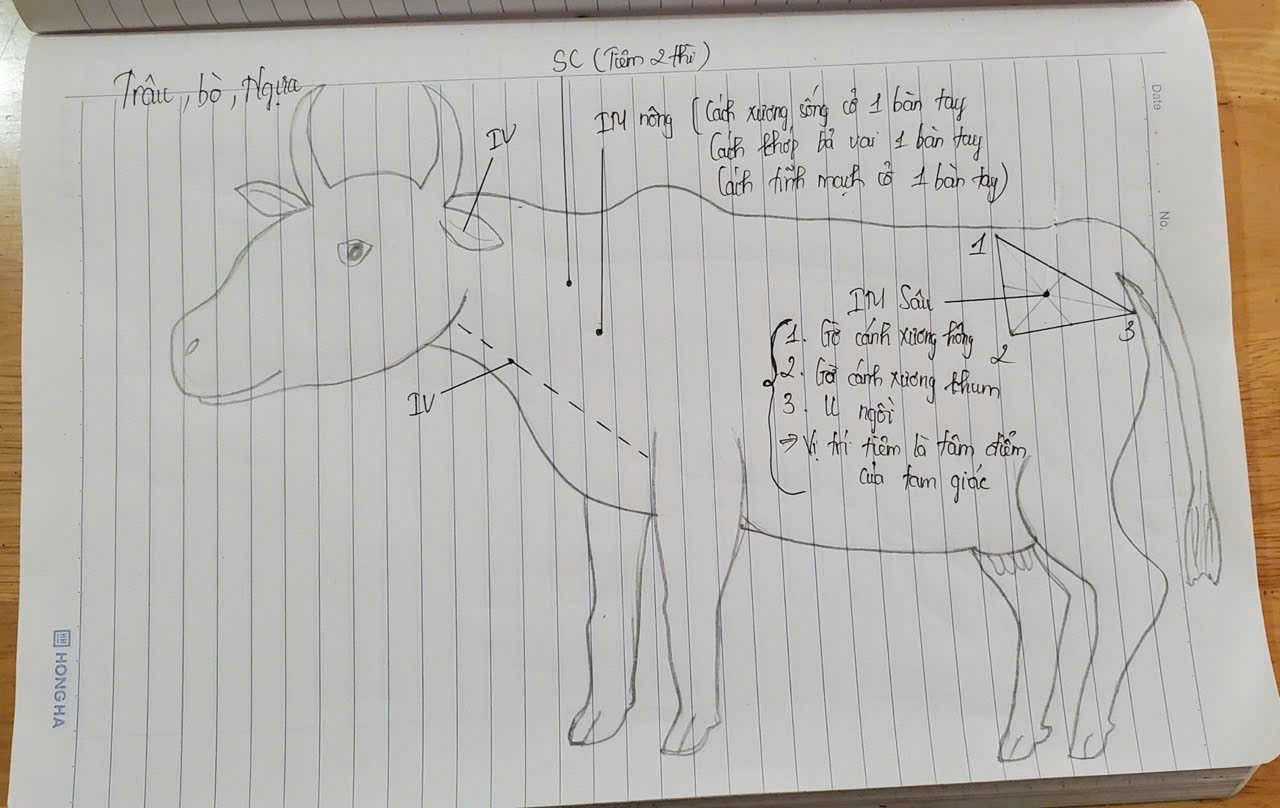 SC (Tiêm 2 thì)
Trâu, bò, Ngựa
IV
IM nông (Cách xương sống cổ 1 bàn tay
Cách khớp bả vai 1 bàn tay
Cách tĩnh mạch cổ 1 bàn tay)
1
IM Sâu
2
3
1. Gờ cánh xương hông
2. Gờ cánh xương khum
3. U ngồi
⇒ Vị trí tiêm là tâm điểm
của tam giác
IV
Date
No.
HH HONG HA